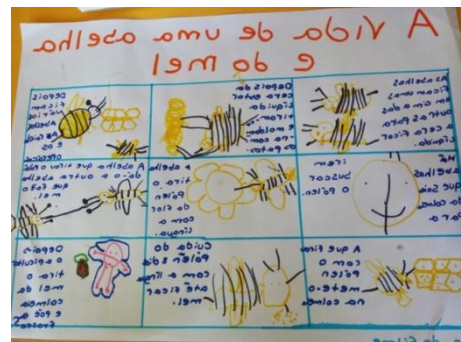 A Vida de uma abelha
e do mel
As abelhas
ficam umas
em cima das
outras para
a cera ficar
líquida.
Depois da
cera estar
líquida
e moldam-
Depois
ficam
várias
e os
Há
abelhas
que
da
para
irem
buscar
o pólen.
A abelha
tira o
pólen
da flor
com a
língua.
A abelha que tira o pólen
dá-o a outra abelha
que faz o
mel.
A que
com o
pólen
mete-o
na
Cuida do
pólen
com a língua
até ficar
mel.
Depois
o apicultor
tira o
mel da
colmeia
e põe